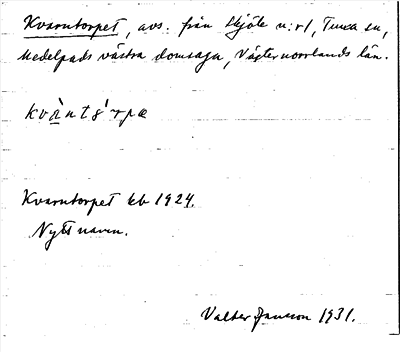 Kvarntorpet, avs. från Skjöle n:r 1, Tuna sn,
Medelpads västra domsaga, Västernorrlands län.
Kvarntorpet kb 1924.
Nytt namn.
Valter Jansson 1931.